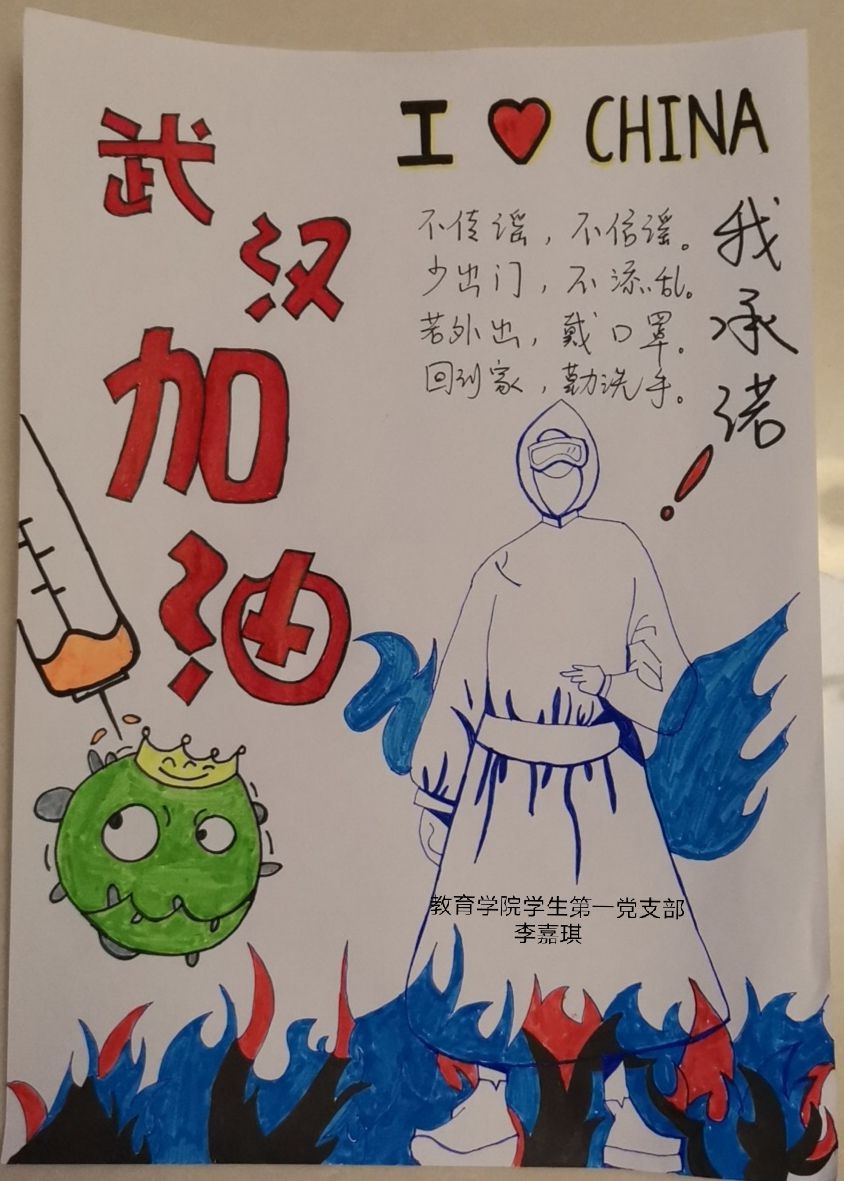 武汉加油
I ❤ CHINA
不传谣，不信谣。
少出门，不添乱。
若外出，戴口罩。
回到家，勤洗手。
我承诺！
教育学院学生第一党支部
李嘉琪